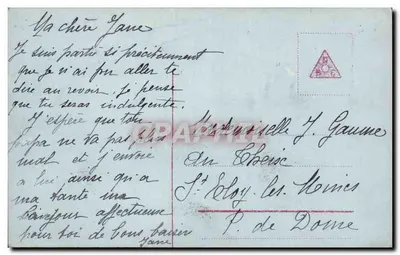 Ma chère Jane
Je suis partie si précipitemment
que je n'ai pu aller te
dire au revoir. Je pense
que tu seras indulgente.
J'espère que ton
papa ne va pas plus
mal et j'envoie
à lui ainsi qu'à
ma tante ma
affectueux
pour toi de bons baisers
Jane
Mademoiselle J. Gaume
au
St Eloy-les-Mines
P. de Dome